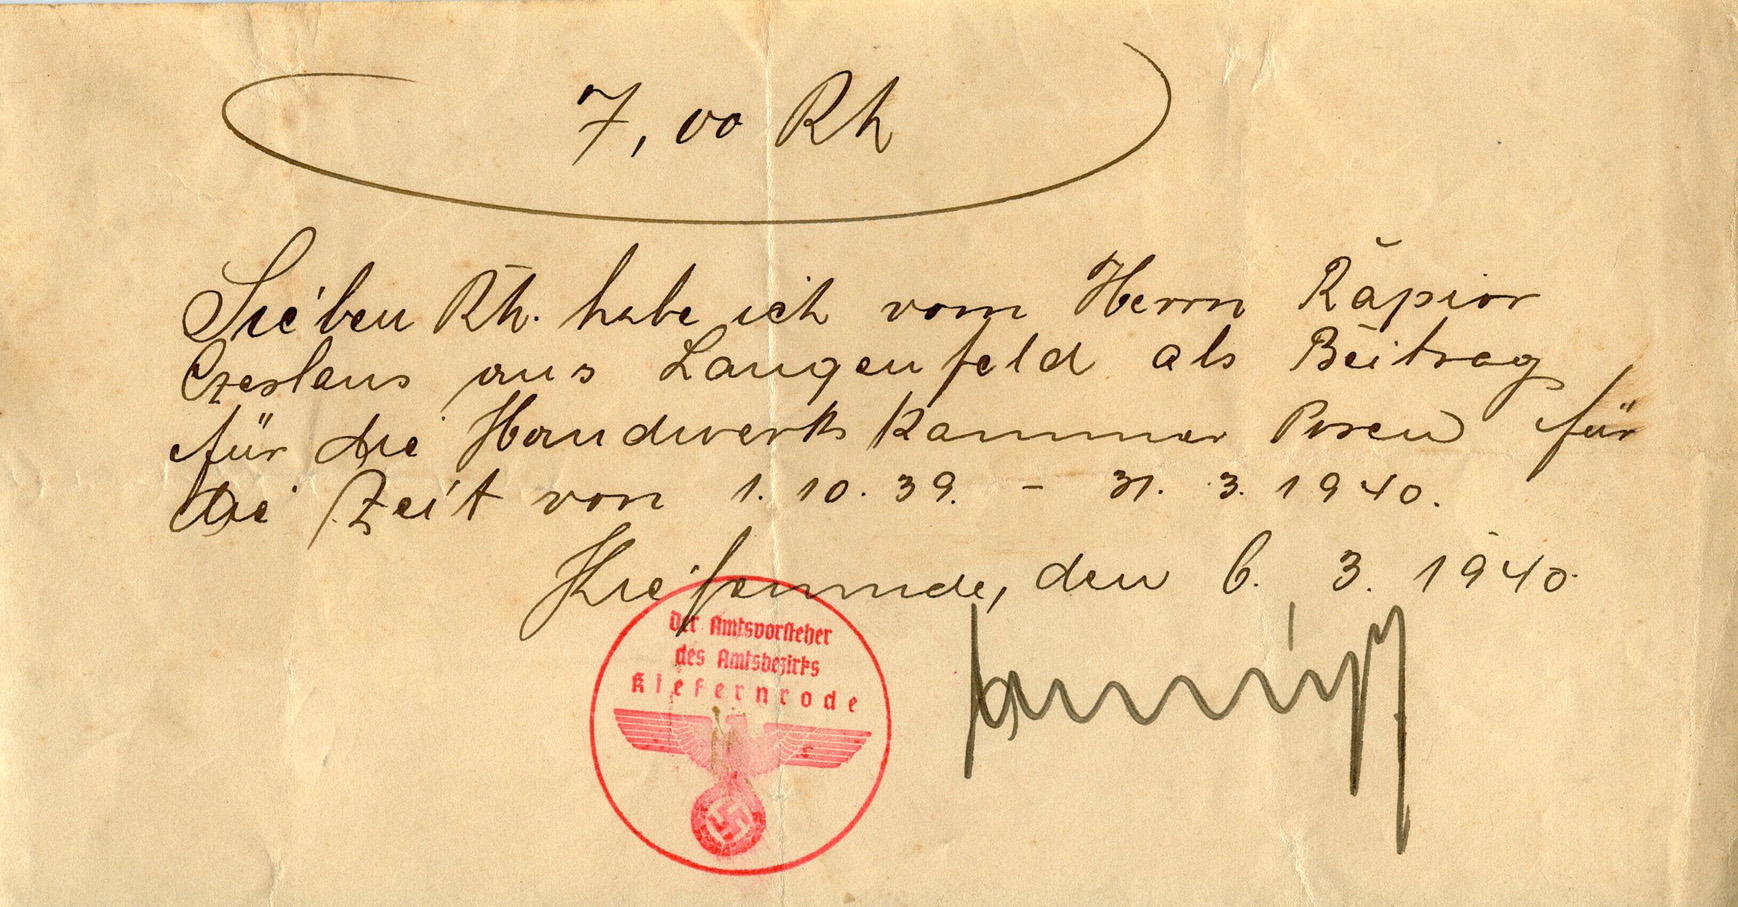 7,00 Rh
Sieben Rh. habe ich vom Herrn Räpior
Czeslaus aus Langenfeld als Beitrag
für die Handwerks Kammer Posen für
die Zeit von 1.10.39. – 31.3.1940.
den 6.3.1940.
Der Amtsvorsteher
des Amtsbezirks
Kiefernrode